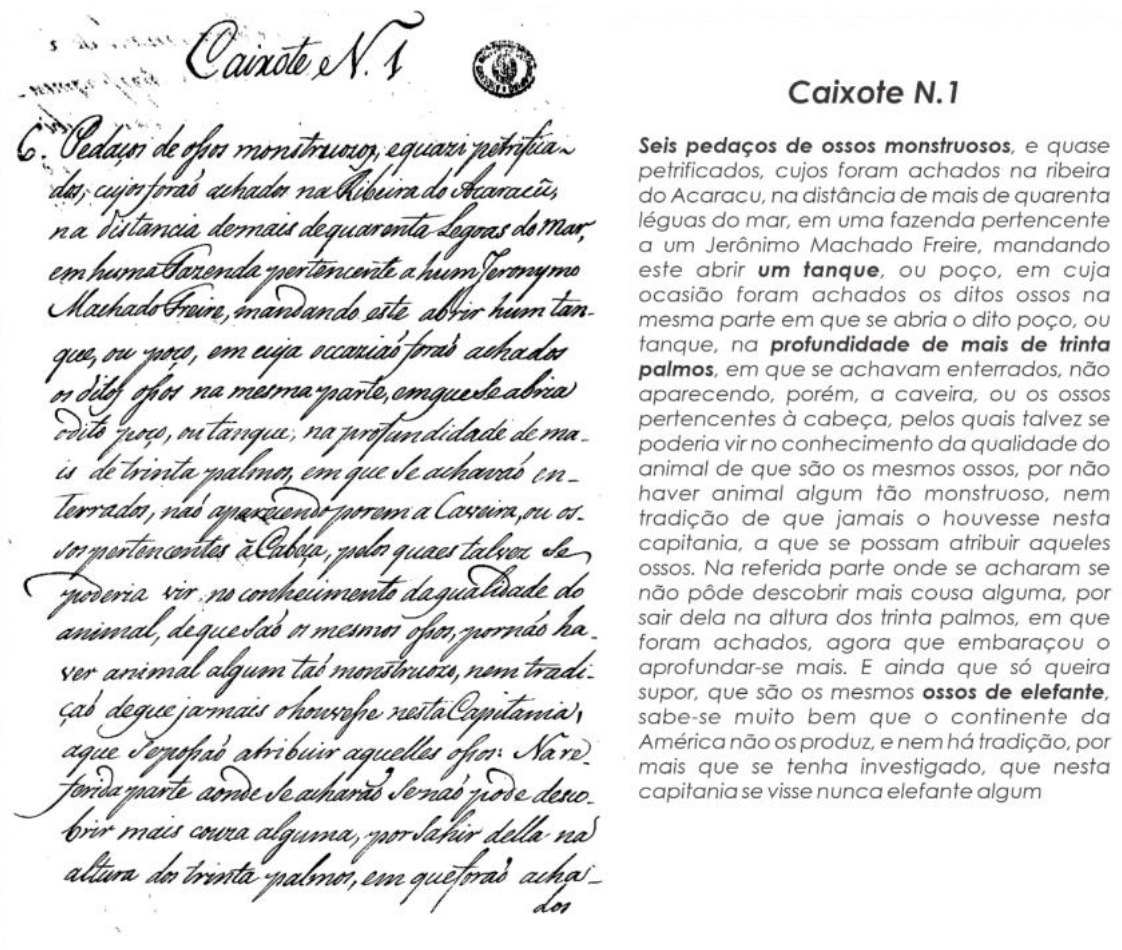 Caixote N. 1
6. Pedaços de ossos monstruozos, e quazi petrifica-
dos, cujos foraõ achados na Ribeira do Acaracû,
na distancia de mais de quarenta Legoas do Mar,
em huma Fazenda pertencente a hum Jeronymo
Machado Freire, mandando este abrir hum tan-
que, ou poço, em cuja occaziaõ foraõ achados
os ditos ossos na mesma parte, em que se abria
o dito poço, ou tanque, na profundidade de ma-
is de trinta palmos, em que se achavaõ en-
terrados, naõ aparecendo porem a Caveira, ou os-
sos pertencentes â Cabeça, pelos quaes talvez se
poderia vir no conhecimento da qualidade do
animal, de que saõ os mesmos ossos, por naõ ha-
ver animal algum taõ monstruozo, nem tradi-
çaõ de que jamais o houvesse nesta Capitania,
a que se possaõ atribuir aquelles ossos: Na re-
ferida parte aonde se acharaõ se naõ pode desco-
brir mais couza alguma, por sahir della na
altura dos trinta palmos, em que foraõ acha-
dos
Caixote N.1
Seis pedaços de ossos monstruosos, e quase
petrificados, cujos foram achados na ribeira
do Acaracu, na distância de mais de quarenta
léguas do mar, em uma fazenda pertencente
a um Jerônimo Machado Freire, mandando
este abrir um tanque, ou poço, em cuja
ocasião foram achados os ditos ossos na
mesma parte em que se abria o dito poço, ou
tanque, na profundidade de mais de trinta
palmos, em que se achavam enterrados, não
aparecendo, porém, a caveira, ou os ossos
pertencentes à cabeça, pelos quais talvez se
poderia vir no conhecimento da qualidade do
animal de que são os mesmos ossos, por não
haver animal algum tão monstruoso, nem
tradição de que jamais o houvesse nesta
capitania, a que se possam atribuir aqueles
ossos. Na referida parte onde se acharam se
não pôde descobrir mais cousa alguma, por
sair dela na altura dos trinta palmos, em que
foram achados, agora que embaraçou o
aprofundar-se mais. E ainda que só queira
supor, que são os mesmos ossos de elefante,
sabe-se muito bem que o continente da
América não os produz, e nem há tradição, por
mais que se tenha investigado, que nesta
capitania se visse nunca elefante algum